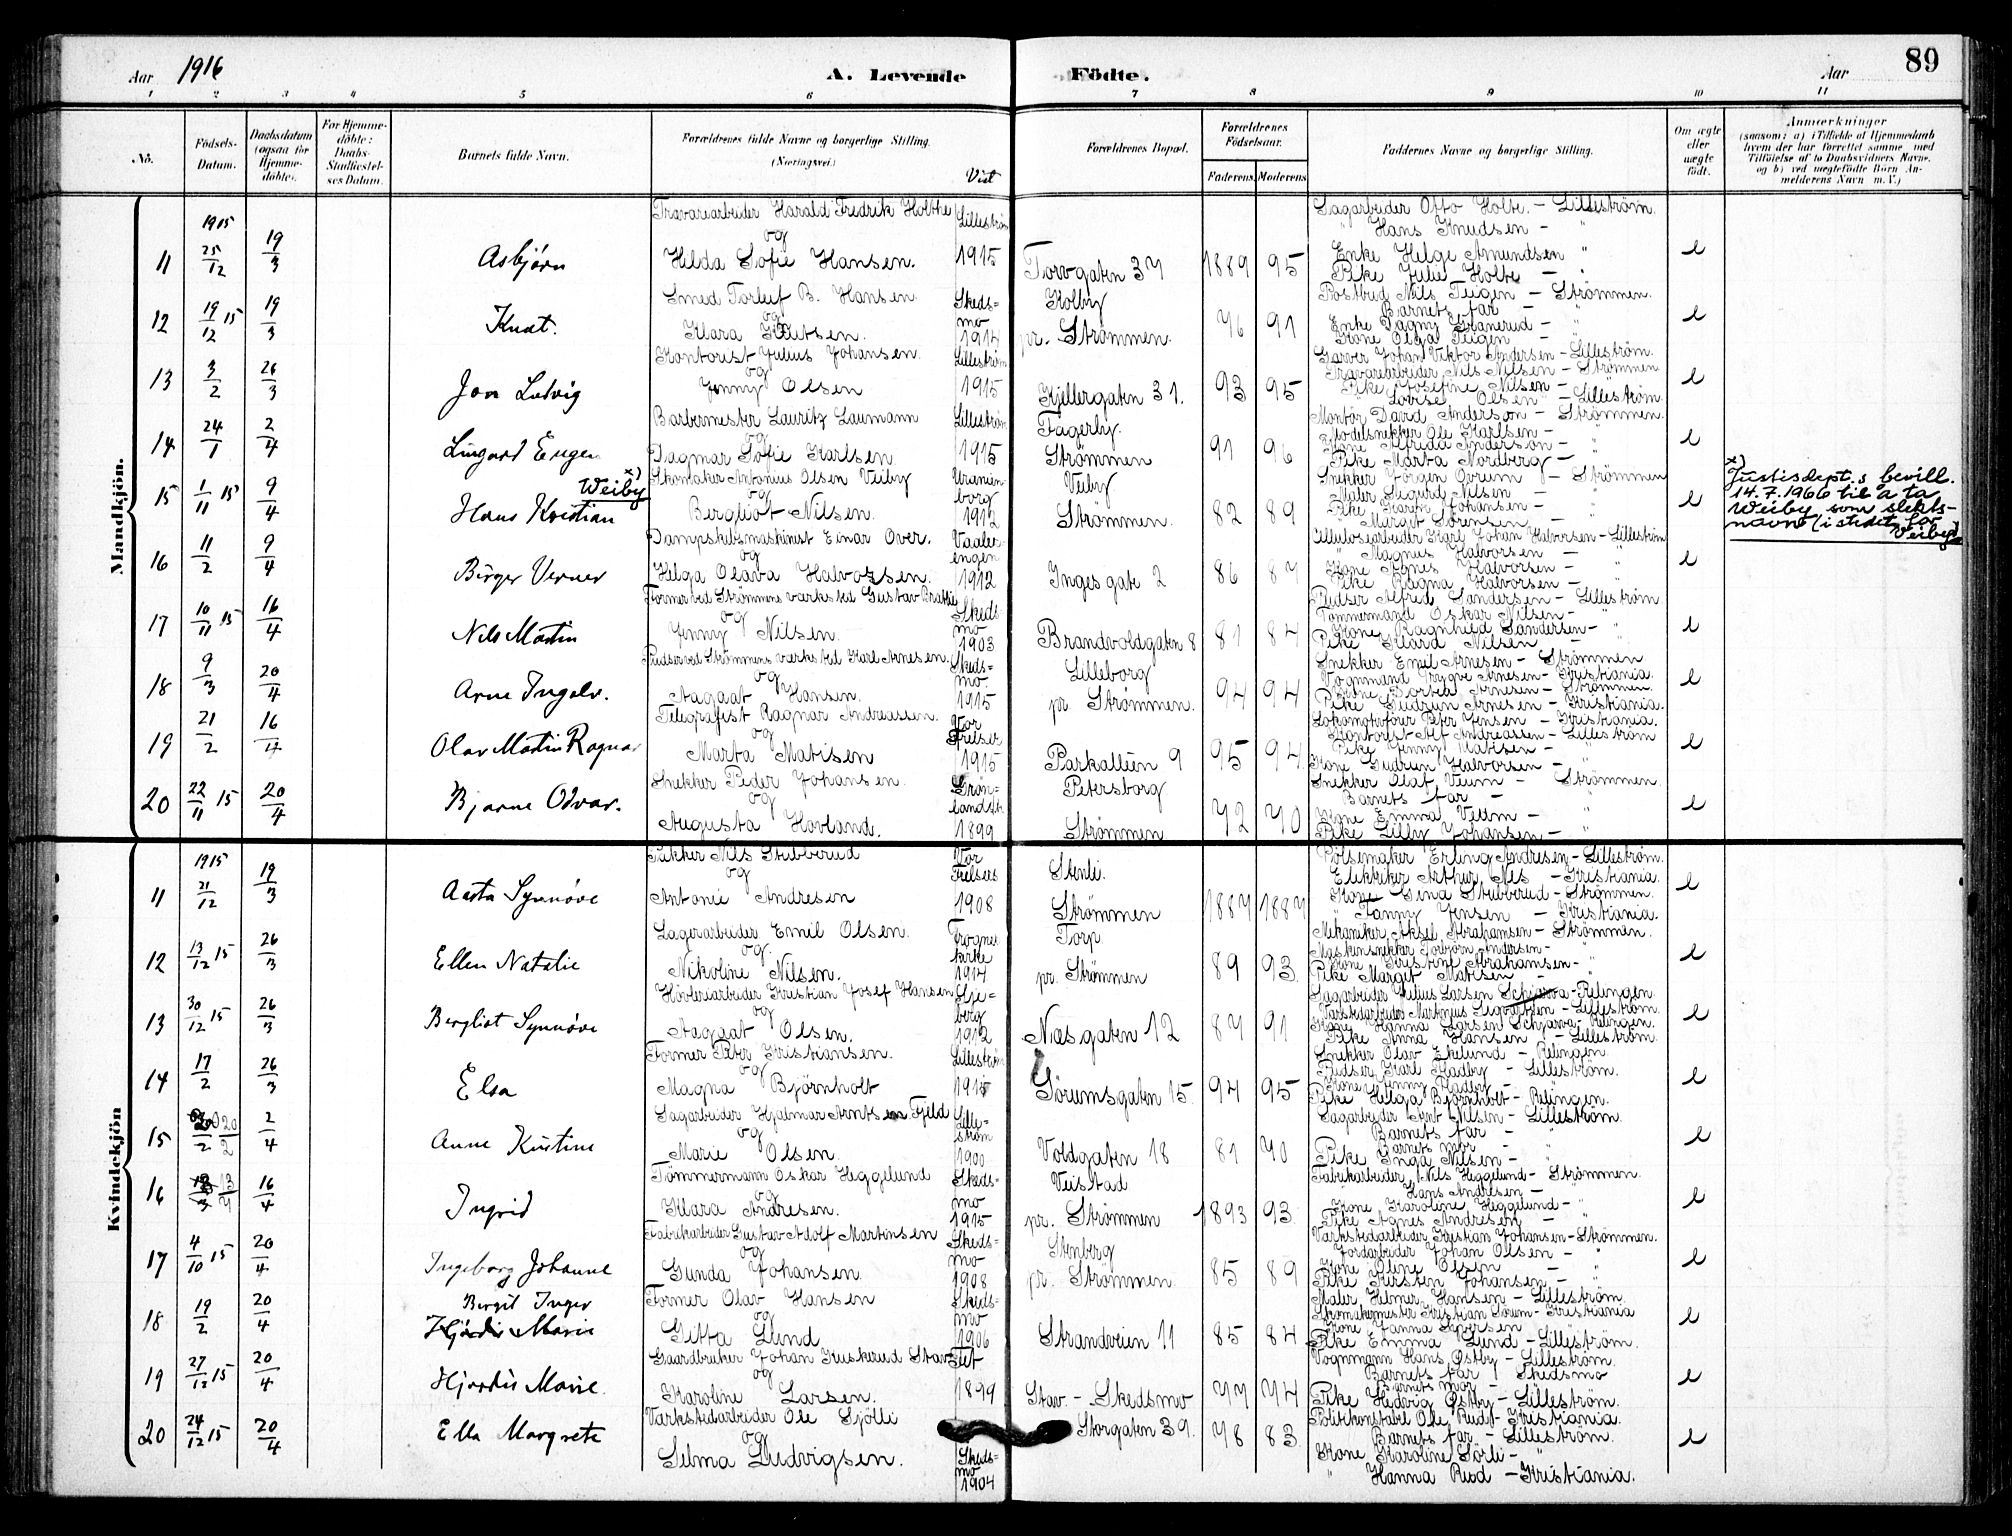 89
Aar 1916
A. Levende Födte.
Aar
1 2 3 4 5 6 7 8 9 10 11
No.
Födsels-Datum.
Daabsdatum (ogsaa for Hjemme-döbte).
For Hjemme-döbte: Daabs-Stadfæstel-ses Datum.
Barnets fulde Navn.
Forældrenes fulde Navne og borgerlige Stilling. (Næringsvei.)
Viet
Forældrenes Bopæl.
Forældrenes Födselsaar.
Faderens. Moderens.
Faddernes Navne og borgerlige Stilling.
Om ægte eller uægte födt.
Anmærkninger
(saasom: a) i Tilfælde af Hjemmedaab hvem der har forrettet samme, med Tilföielse af to Daabsvidners Navne, og b) ved uægtefödte Börn An-melderens Navn m. V.)
Mandkjön.
11 1915 25/12 19/3 Asbjørn
Travarearbeider Harald Fredrik Holthe og Hilda Sofie Hansen.
Lilleström 1915
Torvgaten 37 1889 95
Sagarbeider Otto Holte. - Lilleström.
" Hans Knudsen - "
Enke Helge Amundsen "
Pike Julie Holte - "
e
12 19/12 15 19/3 Knut.
Smed Torleif B. Hansen og Klara Knutsen.
Skeds-mo 1914
Kolby pr. Strömmen. 76 91
Postbud Nils Teigen - Strömmen.
Barnets far - "
Enke Dagny Granerud - "
Kone Olga Teigen - "
e
13 3/2 26/3 Jon Ludvig
Kontorist Julius Johansen og Jenny Olsen
Lilleström 1915
Kjellergaten 31. 93 95
Garver Johan Viktor Andersen - Lilleström.
Travarearbeider Nils Nilsen - Strömmen
Pike Josefine Nilsen - "
" Lovise Olsen - Lilleström.
e
14 24/1 2/4
Barbermester Lauritz Laumann og Dagmar Sofie Karlsen
Lilleström 1915
Fagerby. Strömmen 91 96
Montör David Anderson - Strömmen.
Modelsnekker Ole Karlsen - "
Kone Alfrida Anderson - "
Pike Marta Nordberg - "
e
15 1/11 15 9/4 Hans Kristian Weiby x)
Skomaker Antonius Olsen Veiby og Bergliot Nilsen.
Uranien borg 1912
Veiby Strömmen. 82 89
Snekker Jörgen Overum - Strömmen
Maler Sigurd Nilsen - "
Pike Karen Johansen - "
" Margit Sörensen - "
e
x) Justisdept.s bevill. 14.7.1966 til å ta Weiby som slekts-navn (i stedet for Veiby)
16 11/2 9/4 Birger Verner
Dampskibsmaskinist Einar Over. og Helga Olava Halvorsen.
Vaaler-engen 1912
Inges gate 2 86 87
Cellulosearbeider Karl Johan Halvorsen - Lilleström
" Magnus Halvorsen - "
Kone Agnes Halvorsen - "
Pike Ragna Halvorsen - "
e
17 10/11 15 16/4 Nils Martin
Former ved Strömmens værksted Gustav Brattlie og Jenny Nilsen.
Skeds mo 1903
Brandvoldgaten 8 81 84
Pudser Alfred Sandersen - Lilleström.
Tømmermand Oskar Nilsen - "
Kone Ragnhild Sandersen - "
Pike Klara Nilsen - "
e
18 9/3 20/4 Arne Ingolv.
Pudser ved Strömmens værksted Karl Arnesen. og Aagaat Hansen.
Skeds-mo. 1915
Lilleborg pr Strömmen. 94 94
Snekker Emil Arnesen - Strömmen
Vognmand Trygve Arnesen - Kristiania.
Kone Borba Arnesen - Strömmen.
Pike Gudrun Arnesen - Kristiania.
e
19 21/2 16/4 Olav Martin Ragnar
Telegrafist Ragnar Andreassen. og Marta Matisen
Vor Frelser 1915
Parkalleen 9 95 94
Lokomotivförer Peter Jensen - Kristiania.
Kontorist Alf Andreassen - Lilleström
Pike Jenny Matisen - "
Kone Gudrun Halvorsen - "
e
20 22/11 15 20/4 Bjarne Odvar.
Snekker Peder Johansen. og Augusta Hovland.
Grön-landsk. 1899
Petersborg Strömmen 72 70
Snekker Olaf Veum - Strömmen.
Barnets far - "
Kone Emma Veum - "
Pike Lilly Johansen - "
e
Kvindekjön
11 1915 21/12 19/3 Aasta Synnöve
Snekker Nils Stubberud og Antonie Andresen
Vor Frelses 1908
Stenli. Strömmen 1887 1887
Pölsemaker Erling Andresen - Lilleström.
Elektriker Arthur Nes - Kristiania.
Kone Gina Stubberud - Strömmen.
" Fanny Jensen - Kristiania.
e
12 13/12 15 26/3 Ellen Natalie
Lagerarbeider Emil Olsen. og Nikoline Nilsen.
Frogner kirke 1914
Torp pr. Strömmen 89 93
Mekaniker Aksel Abrahamsen - Strömmen.
Maskinsnekker Torbjörn Andersen - "
Kone Kristine Abrahamsen - "
Pike Margit Matisen - "
e
13 30/12 15 26/3 Bergliot Synnöve
Hövleriarbeider Kristian Josef Hansen og Aagaat Olsen.
Gje-berg 1912
Næsgaten 12 87 91
Sagarbeider Julius Larsen Schjærva - Rælingen
Værkstedarbeider Martinius Sigvartsen - Lilleström.
Kone Hanna Larsen Schjærva - Rælingen.
Pike Anna Hansen - Lilleström.
e
14 17/2 26/3 Elsa
Former Peter Kristiansen. og Magna Björnholt
Lilleström 1915
Sörumsgaten 15. 94 95
Snekker Olav Ekelund - Rælingen
Pudser Karl Hadby - Lilleström.
Kone Jenny Hadby - "
Pike Helga Björnholt - Rælingen.
e
15 20/2 2/4 Anne Kristine
Sagarbeider Hjalmar Arntsen Fjeld og Marie Olsen.
Lille-ström 1900
Voldgaten 18 81 70
Sagarbeider Arnt Nilsen - Lilleström.
Barnets far - "
Barnets mor - "
Pike Inga Nilsen - "
e
16 13/4 16/4 Ingrid
Tömmermann Oskar Heggelund og Klara Andresen.
Skeds-mo 1915
Veistad pr. Strömmen 1893 93
Fabrikarbeider Nils Heggelund - Strömmen.
" Hans Andresen - "
Kone Karoline Heggelund - "
Pike Agnes Andresen - "
e
17 4/10 15 20/4 Ingeborg Johanne
Fabrikarbeider Gustav Adolf Martinsen og Gunda Johansen
Skeds-mo 1908
Stenberg pr. Strömmen 85 89
Værkstedarbeider Kristian Johansen - Strömmen.
Jordarbeider Johan Olsen - "
Kone Oline Olsen - "
Pike Kirsten Johansen - "
e
18 19/2 20/4 Bergit Inger
Hjørdis Marie
Former Olav Hansen og Gitta Lund
Skeds-mo 1906
Strandveien 11 85 84
Maler Helmer Hansen - Lilleström.
Skomakermester Kristian Sörum - Kristiania
Pike Emma Lund - Lilleström.
e
19 27/12 15 20/4 Hjørdis Marie.
Gaardbruker Johan Kuskerud Stav og Karoline Larsen.
Fet 1899
Stav. - Skedsmo 77 74
Vognmann Hans Østby - Lilleström.
Barnets far - Skedsmo
Barnets mor - "
Pike Hedvig Østby - Lilleström.
e
20 24/12 15 20/4 Ella Margrete
Værkstedarbeider Ole Sjölli og Selma Ludvigsen.
Skeds-mo 1904
Storgaten 39. 78 83
Politikonstabel Ole Rud - Kristiania.
Barnets far - Lilleström.
Kone Karoline Sörli - "
" Hanna Rud - Kristiania.
e